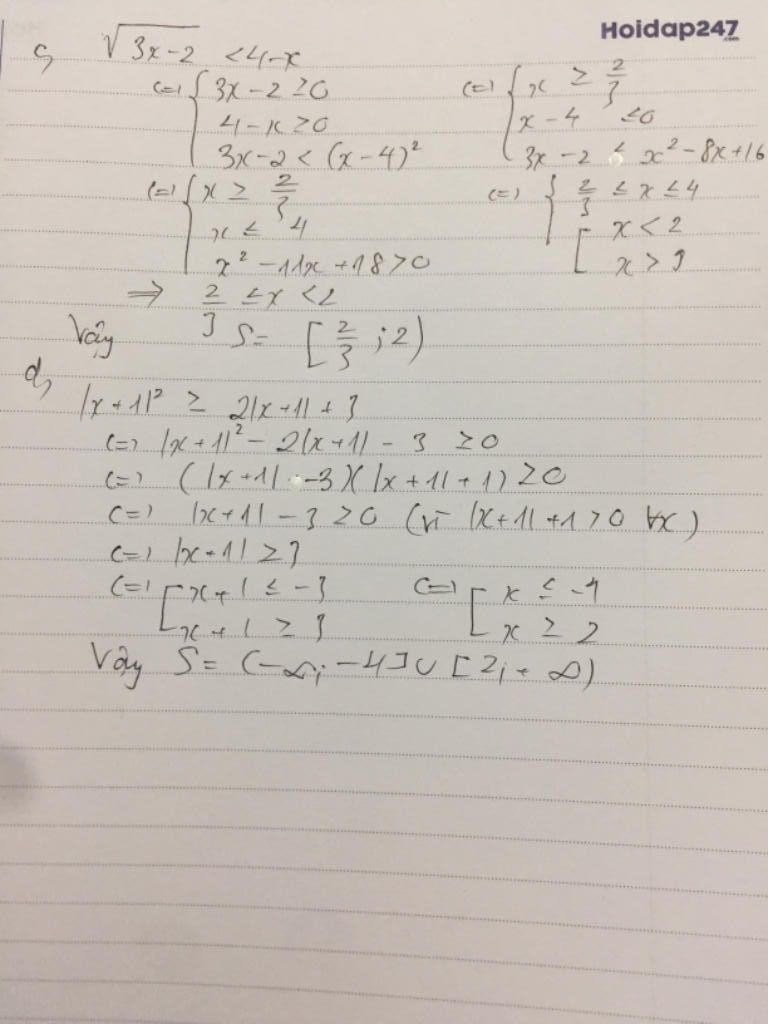 Hoidap247.com
c, √(3x-2) < 4-x
<=> { 3x-2 ≥ 0
4-x ≥ 0
3x-2 < (x-4)²
<=> { x ≥ 2/3
x-4 ≤ 0
3x-2 < x²-8x+16
<=> { x ≥ 2/3
x ≤ 4
x²-11x+18 > 0
<=> { 2/3 ≤ x ≤ 4
[ x < 2
x > 9
=> 2/3 ≤ x < 2
Vậy S = [2/3 ; 2)
d,
|x+1|² ≥ 2|x+1| + 3
<=> |x+1|² - 2|x+1| - 3 ≥ 0
<=> (|x+1| - 3)(|x+1| + 1) ≥ 0
<=> |x+1| - 3 ≥ 0 (vì |x+1| + 1 > 0 ∀x)
<=> |x+1| ≥ 3
<=> [ x+1 ≤ -3
x+1 ≥ 3
<=> [ x ≤ -4
x ≥ 2
Vậy S = (-∞; -4] ∪ [2; +∞)